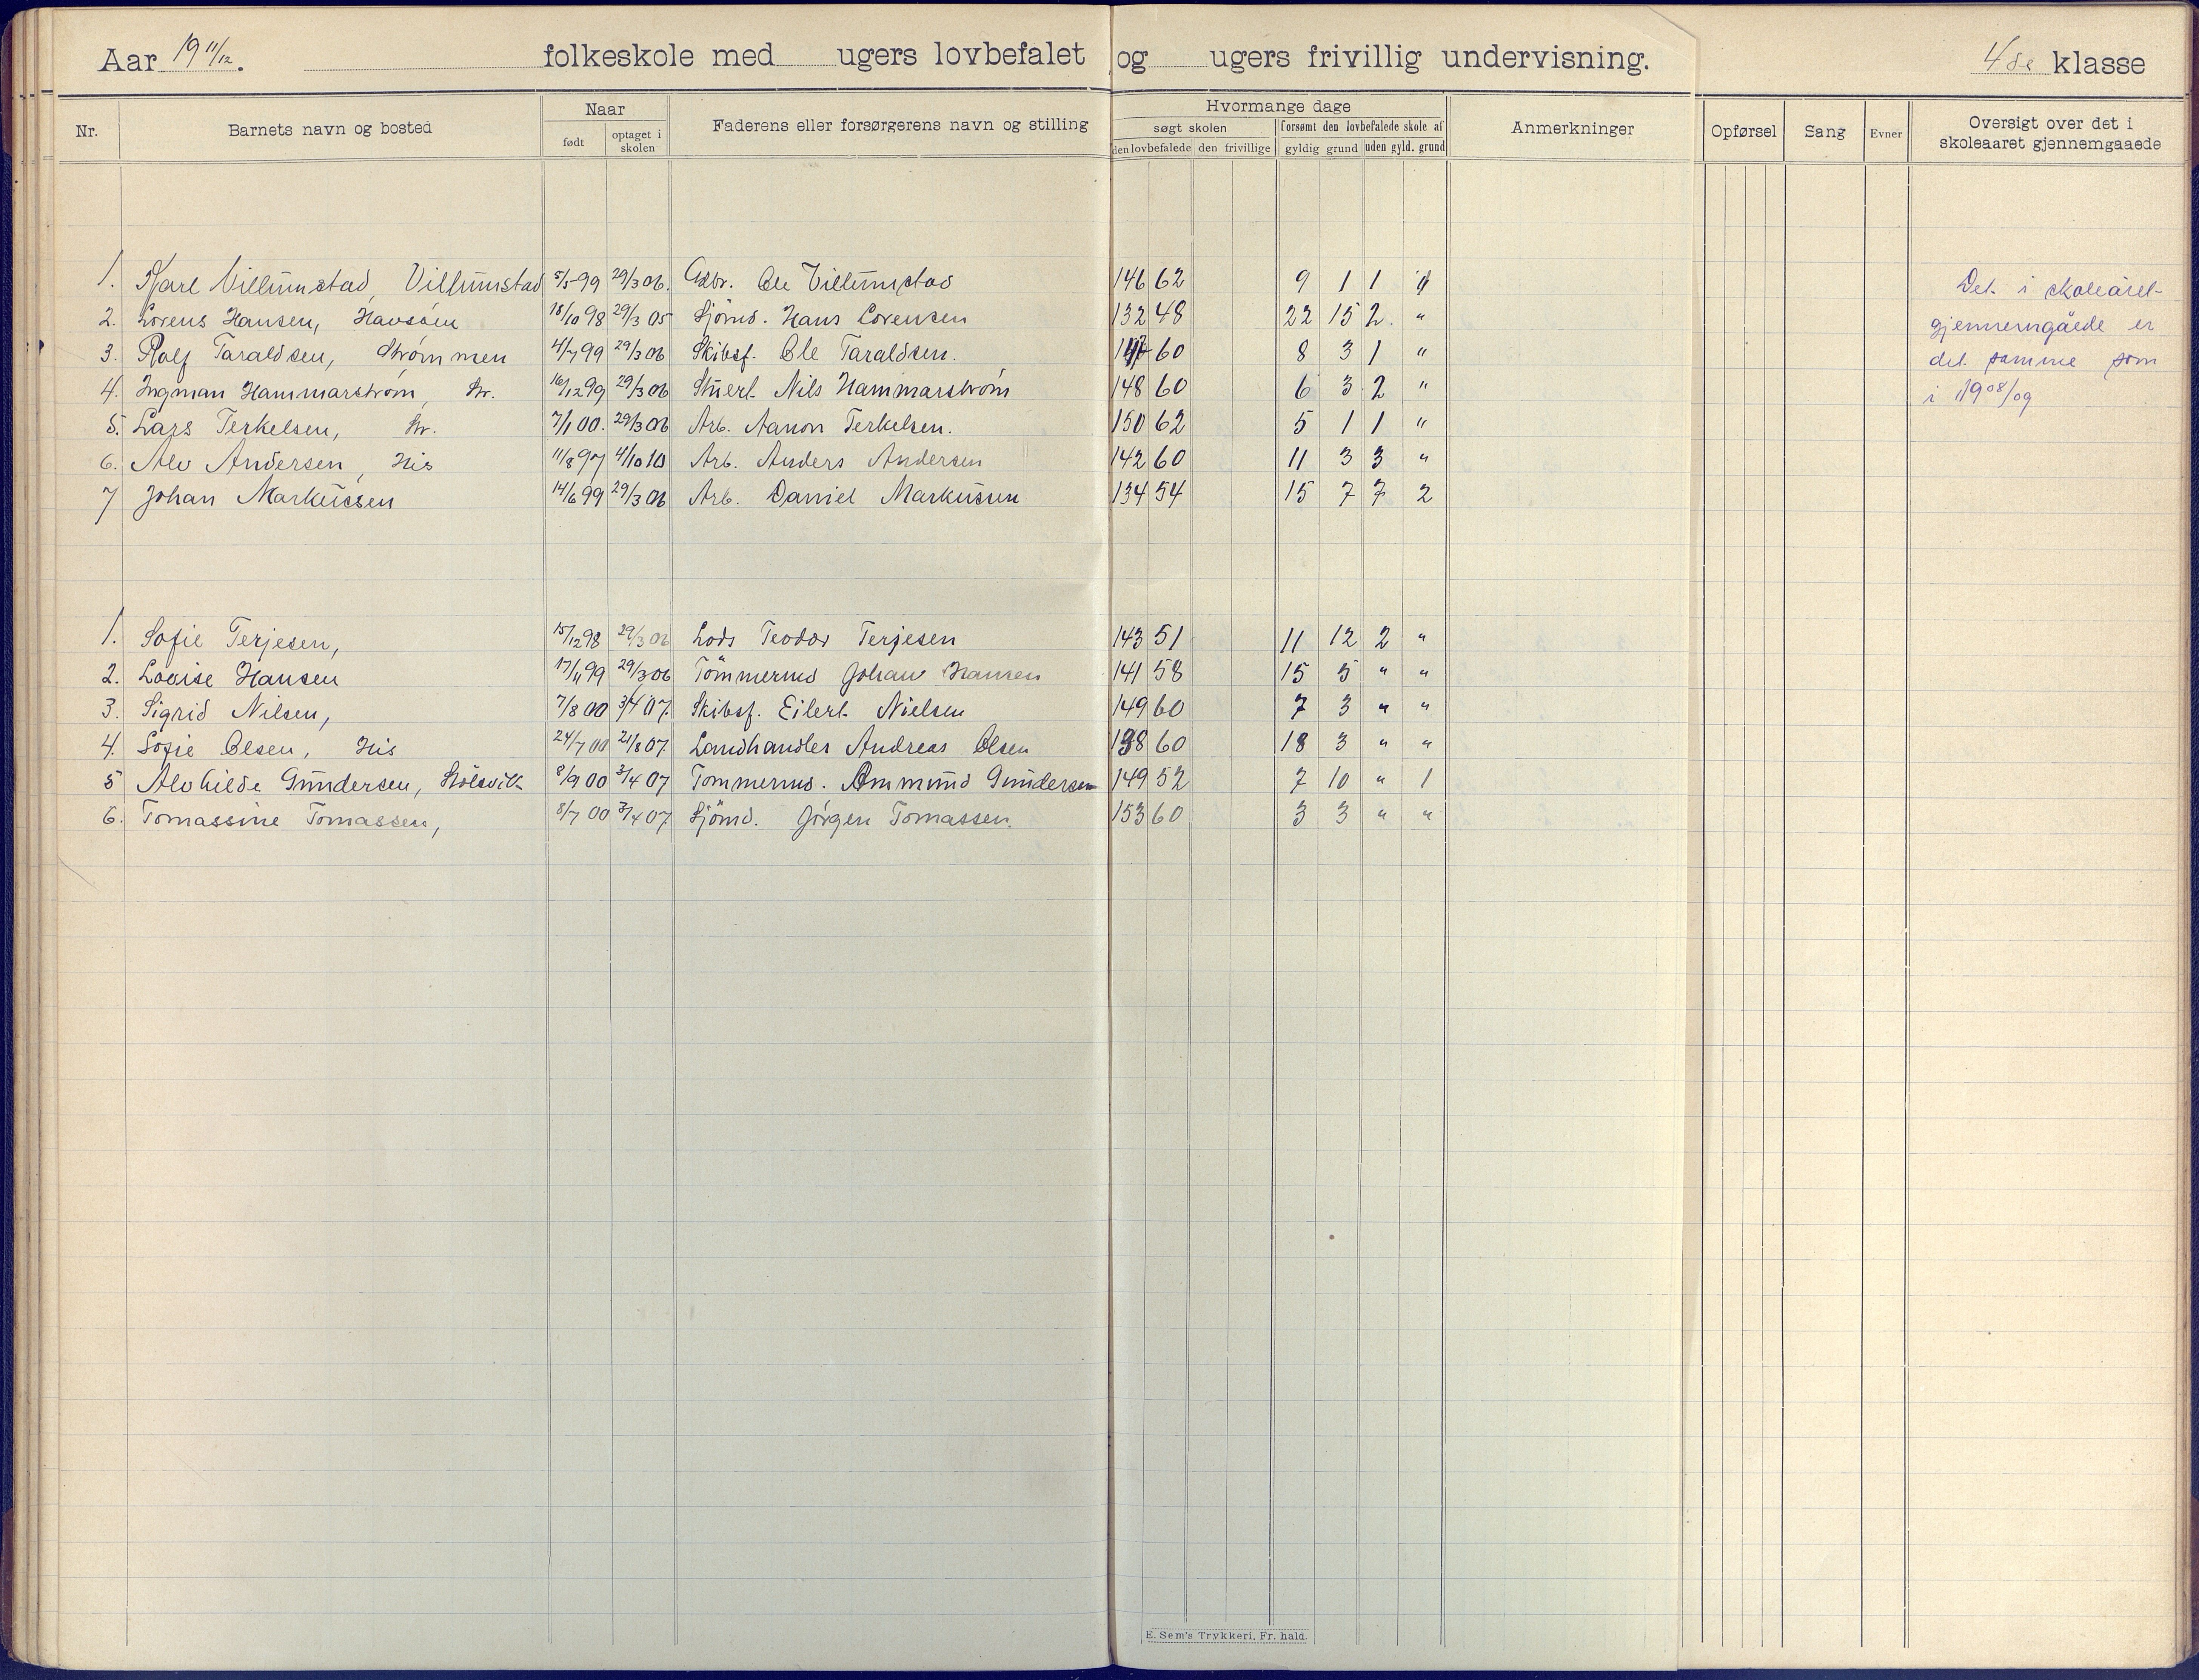 Aar 19 11/12. folkeskole med ugers lovbefalet og ugers frivillig undervisning. 4de klasse
Nr. Barnets navn og bosted Naar født optaget i skolen Faderens eller forsørgerens navn og stilling Hvormange dage søgt skolen den lovbefalede den frivillige forsømt den lovbefalede skole af gyldig grund uden gyld. grund Anmerkninger Opførsel Sang Evner Oversigt over det i skoleaaret gjennemgaaede
1. Karl Villumstad, Villumstad 5/5 99 29/3 06. Gbr. Ole Villumstad 146 62 9 1 1 "
2. Lorens Hansen, Havsøen 18/10 98 29/3 05 Sjömd. Hans Lorensen 132 48 22 15 2. "
3. Rolf Taraldsen, Strømmen 4/7 99 29/3 06 Skibsf. Ole Taraldsen. 147 60 8 3 1 "
4. Ingman Hammarstrøm, Str. 16/12 99 29/3 06 Stuert Nils Hammarstrøm 148 60 6 3 2 "
5. Lars Terkelsen, Str. 7/1 00. 29/3 06 Arb. Aanon Terkelsen. 150 62 5 1 1 "
6. Alv Andersen, His 11/8 97 4/10 10 Arb. Anders Andersen 142 60 11 3 3 "
7 Johan Markussen 14/6 99 29/3 06 Arb. Daniel Markussen 134 54 15 7 7 2
1. Sofie Terjesen, 15/12 98 29/3 06 Lods Teodor Terjesen 143 51 11 12 2 "
2. Lovise Hansen 17/11 99 29/3 06 Tömmermd Johan Hansen 141 58 15 5 " "
3. Sigrid Nilsen, 7/8 00 3/4 07. Skibsf. Eilert Nielsen 149 60 7 3 " "
4. Sofie Olsen, His 24/7 00 21/8 07. Landhandler Andreas Olsen 138 60 18 3 " "
5 Alvhilde Gundersen, Kölsvik 8/9 00 3/4 07 Tömmermd. Ommund Gundersen 149 52 7 10 " 1
6. Tomassine Tomassen, 8/7 00 3/4 07 Sjömd. Jørgen Tomassen. 153 60 3 3 " "
Det i skoleåret
gjennemgåede er
det samme som
i 1908/09
E. Sem's Trykkeri, Fr. hald.